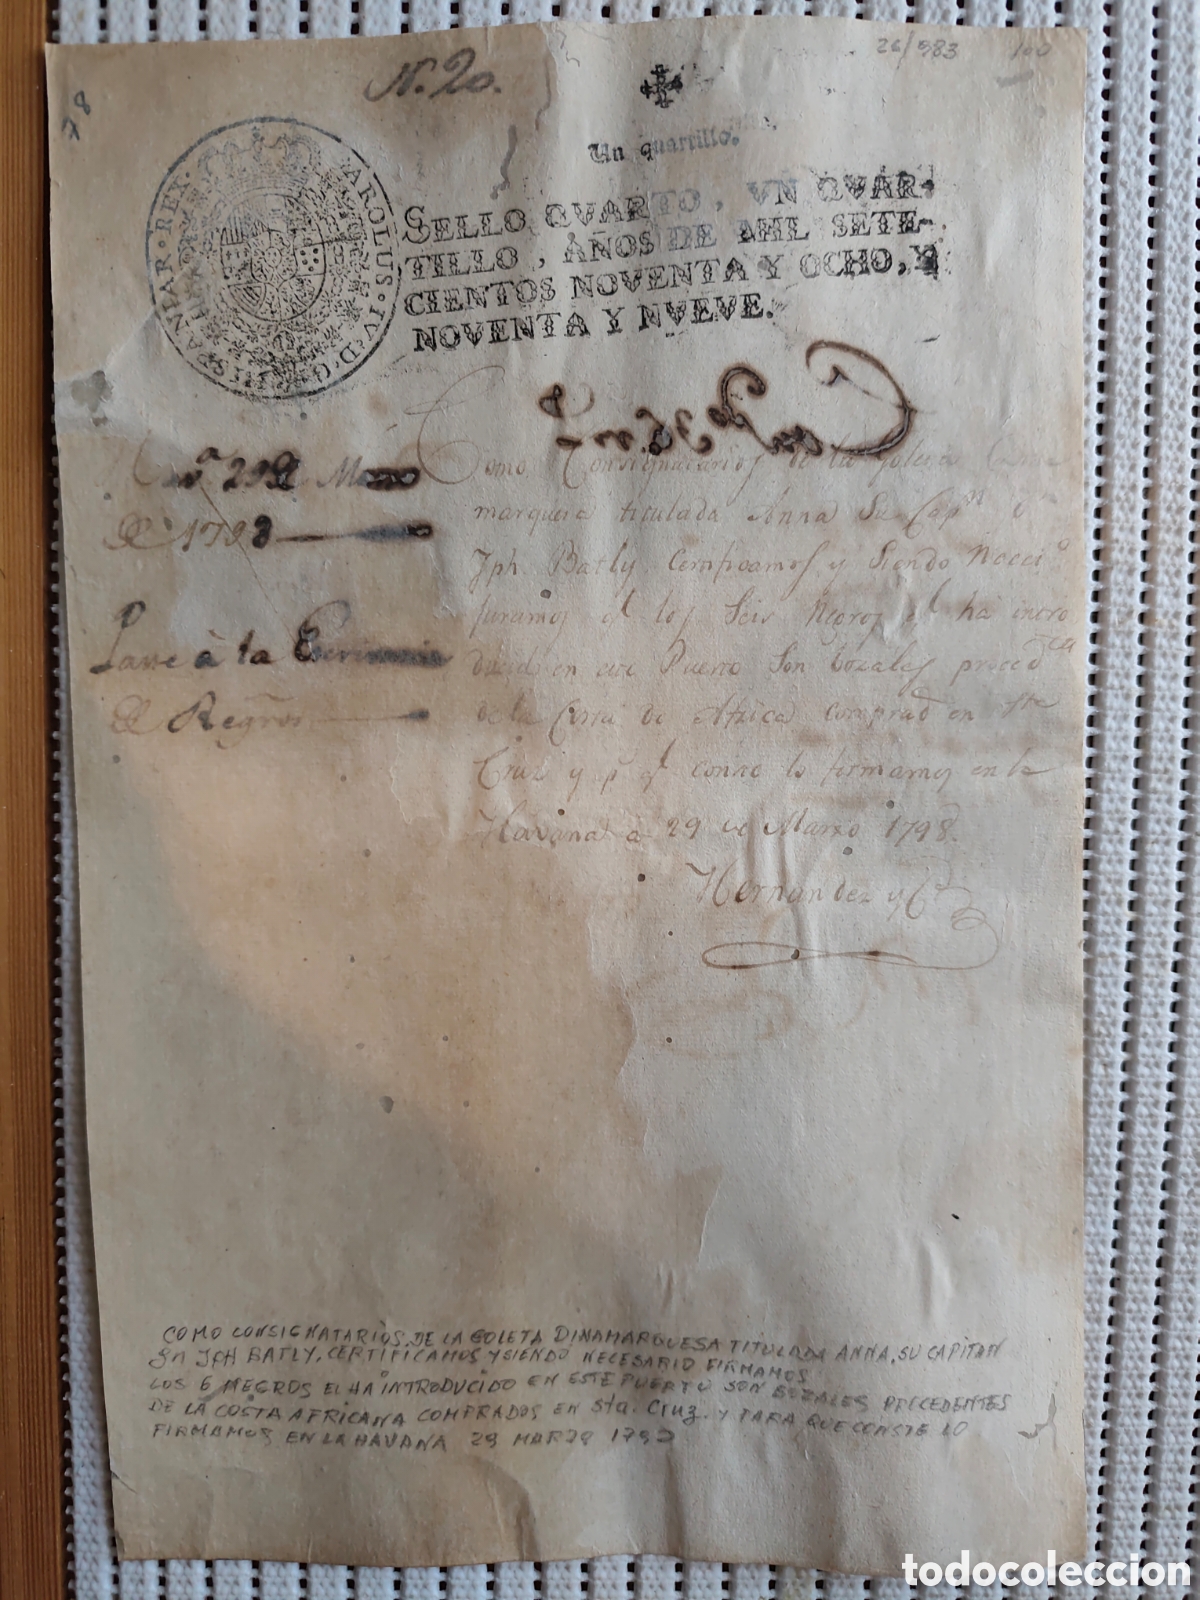 26/983 100
N. 20.
78
Un quartillo.
CAROLUS · IV · D · G · HISPANIAR · REX ·
SELLO QVARTO, VN QVAR-
TILLO, AÑOS DE MIL SETE-
CIENTOS NOVENTA Y OCHO, Y
NOVENTA Y NVEVE.
29 de Marzo
de 1798
Pase à la
de Negros
Como Consignatarios de la Goleta Dina
marquesa titulada Anna Su Cap.n
Jph Batly Certificamos y Siendo Neces.o
juramos q.l los Seis Negros q.l ha intro
ducido en este Puerto Son bozales proced.tes
de la Costa de Africa comprad.s en Sta
Cruz y p.a q.l conste lo firmamos en la
Havana à 29 de Marzo 1798.
Hernandez y C.a
COMO CONSIGNATARIOS DE LA GOLETA DINAMARQUESA TITULADA ANNA, SU CAPITAN
Dn JPH BATLY, CERTIFICAMOS Y SIENDO NECESARIO FIRMAMOS
LOS 6 NEGROS EL HA INTRODUCIDO EN ESTE PUERTO SON BOZALES PRECEDENTES
DE LA COSTA AFRICANA COMPRADOS EN Sta. Cruz. Y PARA QUE CONSTE LO
FIRMAMOS EN LA HAVANA 29 MARZO
todocoleccion